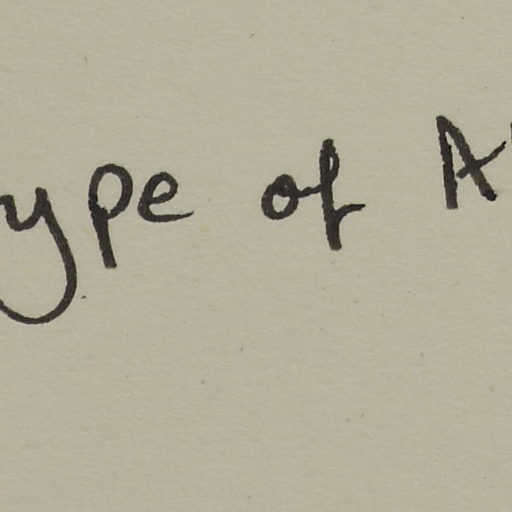 ype of A